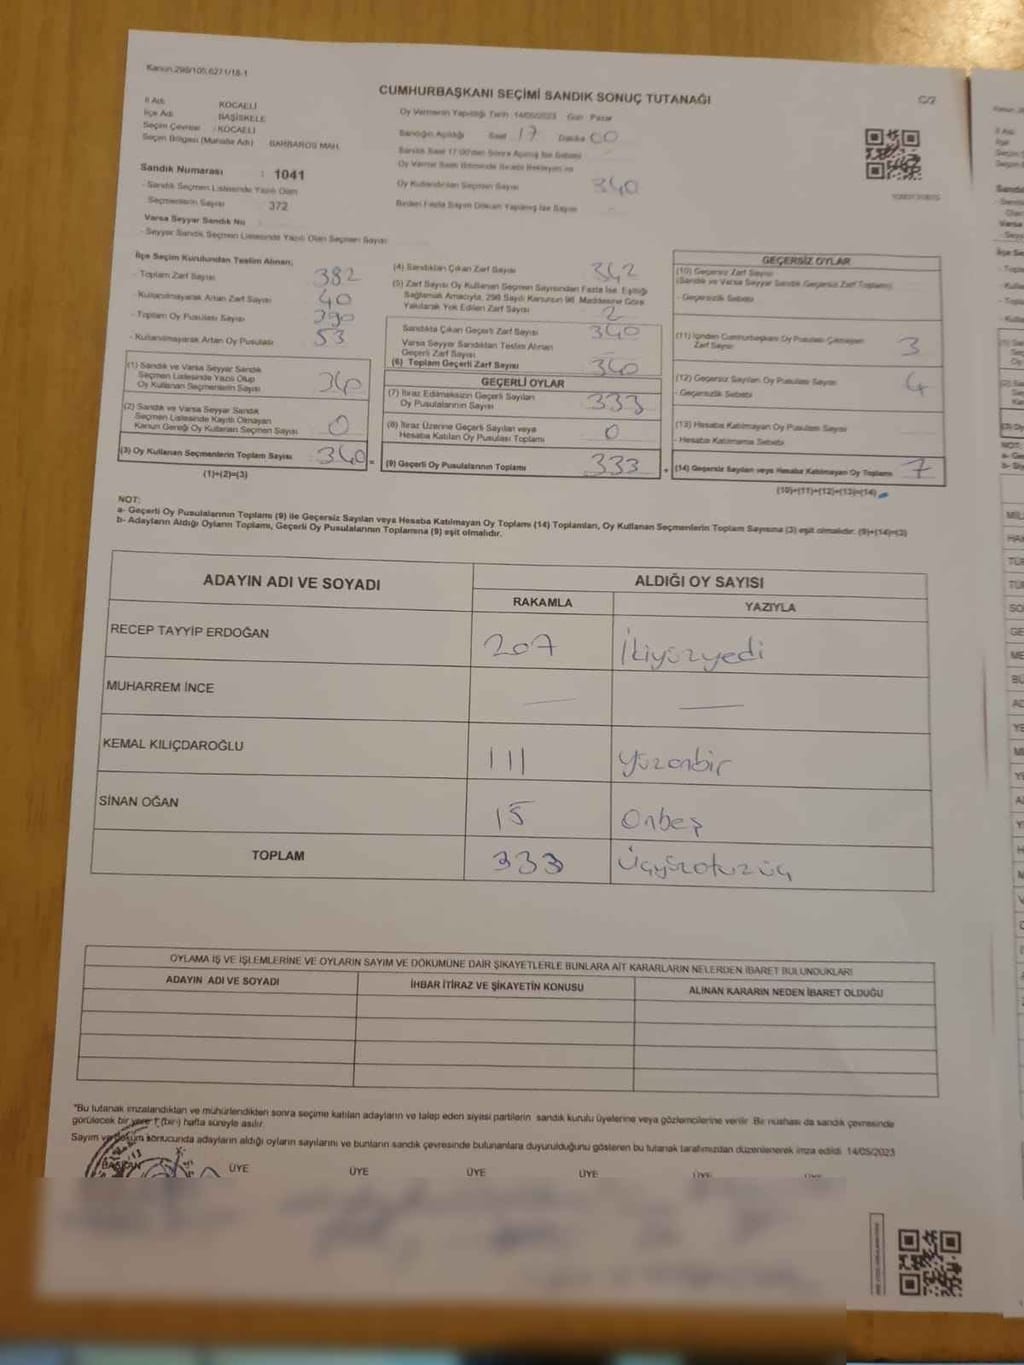 Kanun.298/105.6271/18-1
CUMHURBAŞKANI SEÇİMİ SANDIK SONUÇ TUTANAĞI
C/2
İl Adı KOCAELİ
İlçe Adı BAŞİSKELE
Seçim Çevresi KOCAELİ
Seçim Bölgesi (Mahalle Adı) BARBAROS MAH.
Oy Vermenin Yapıldığı Tarih 14/05/2023 Gün Pazar
Sandığın Açıldığı Saat 17 Dakika 00
Sandık Saat 17:00'den Sonra Açılmış İse Sebebi
Oy Kullandırılan Seçmen Sayısı 340
Birden Fazla Sayım Döküm Yapılmış İse Sayısı
Sandık Numarası : 1041
- Sandık Seçmen Listesinde Yazılı Olan
Seçmenlerin Sayısı 372
Varsa Seyyar Sandık No
- Seyyar Sandık Seçmen Listesinde Yazılı Olan Seçmen Sayısı
İlçe Seçim Kurulundan Teslim Alınan;
- Toplam Zarf Sayısı 382
- Kullanılmayarak Artan Zarf Sayısı 40
- Toplam Oy Pusulası Sayısı 390
- Kullanılmayarak Artan Oy Pusulası 53
(1) Sandık ve Varsa Seyyar Sandık
Seçmen Listesinde Yazılı Olup
Oy Kullanan Seçmenlerin Sayısı 340
(2) Sandık ve Varsa Seyyar Sandık
Seçmen Listesinde Kayıtlı Olmayan
Kanun Gereği Oy Kullanan Seçmen Sayısı 0
(3) Oy Kullanan Seçmenlerin Toplam Sayısı 340 =
(1)+(2)=(3)
(4) Sandıktan Çıkan Zarf Sayısı 342
(5) Zarf Sayısı Oy Kullanan Seçmen Sayısından Fazla İse, Eşitliği
Sağlamak Amacıyla, 298 Sayılı Kanunun 98. Maddesine Göre
Yakılarak Yok Edilen Zarf Sayısı 2
Sandıkta Çıkan Geçerli Zarf Sayısı 340
Varsa Seyyar Sandıktan Teslim Alınan
Geçerli Zarf Sayısı
(6) Toplam Geçerli Zarf Sayısı 340
GEÇERLİ OYLAR
(7) İtiraz Edilmeksizin Geçerli Sayılan
Oy Pusulalarının Sayısı 333
(8) İtiraz Üzerine Geçerli Sayılan veya
Hesaba Katılan Oy Pusulası Toplamı 0
(9) Geçerli Oy Pusulalarının Toplamı 333 +
GEÇERSİZ OYLAR
(10) Geçersiz Zarf Sayısı
(Sandık ve Varsa Seyyar Sandık Geçersiz Zarf Toplamı)
- Geçersizlik Sebebi
(11) İçinden Cumhurbaşkanı Oy Pusulası Çıkmayan
Zarf Sayısı 3
(12) Geçersiz Sayılan Oy Pusulası Sayısı 4
- Geçersizlik Sebebi
(13) Hesaba Katılmayan Oy Pusulası Sayısı
- Hesaba Katılmama Sebebi
(14) Geçersiz Sayılan veya Hesaba Katılmayan Oy Toplamı 7
(10)+(11)+(12)+(13)=(14)
NOT:
a- Geçerli Oy Pusulalarının Toplamı (9) ile Geçersiz Sayılan veya Hesaba Katılmayan Oy Toplamı (14) Toplamları, Oy Kullanan Seçmenlerin Toplam Sayısına (3) eşit olmalıdır. (9)+(14)=(3)
b- Adayların Aldığı Oyların Toplamı, Geçerli Oy Pusulalarının Toplamına (9) eşit olmalıdır.
ADAYIN ADI VE SOYADI ALDIĞI OY SAYISI
RAKAMLA YAZIYLA
RECEP TAYYİP ERDOĞAN 207 İkiyüzyedi
MUHARREM İNCE — —
KEMAL KILIÇDAROĞLU 111 yüzonbir
SİNAN OĞAN 15 Onbeş
TOPLAM 333 Üçyüzotuzüç
OYLAMA İŞ VE İŞLEMLERİNE VE OYLARIN SAYIM VE DÖKÜMÜNE DAİR ŞİKAYETLERLE BUNLARA AİT KARARLARIN NELERDEN İBARET BULUNDUKLARI
ADAYIN ADI VE SOYADI İHBAR İTİRAZ VE ŞİKAYETİN KONUSU ALINAN KARARIN NEDEN İBARET OLDUĞU
*Bu tutanak imzalandıktan ve mühürlendikten sonra seçime katılan adayların ve talep eden siyasi partilerin sandık kurulu üyelerine veya gözlemcilerine verilir. Bir nüshası da sandık çevresinde
görülecek bir yere 1 (bir) hafta süreyle asılır.
Sayım ve döküm sonucunda adayların aldığı oyların sayılarını ve bunların sandık çevresinde bulunanlara duyurulduğunu gösteren bu tutanak tarafımızdan düzenlenerek imza edildi. 14/05/2023
BAŞKAN ÜYE ÜYE ÜYE ÜYE ÜYE